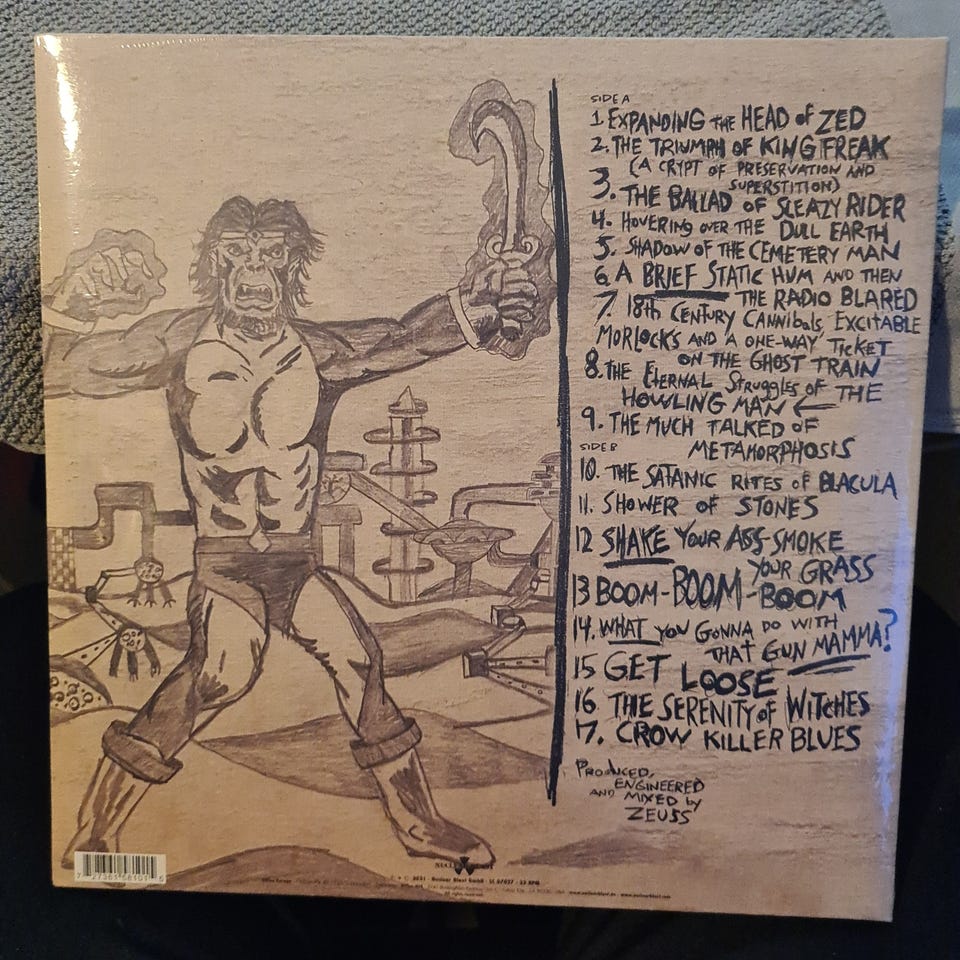 SIDE A
1. EXPANDING THE HEAD OF ZED
2. THE TRIUMPH OF KING FREAK
(A CRYPT OF PRESERVATION AND
SUPERSTITION)
3. THE BALLAD OF SLEAZY RIDER
4. HOVERING OVER THE DULL EARTH
5. SHADOW OF THE CEMETERY MAN
6. A BRIEF STATIC HUM AND THEN
THE RADIO BLARED
7. 18th CENTURY CANNIBALS, EXCITABLE
MORLOCKS AND A ONE-WAY TICKET
ON THE GHOST TRAIN
8. THE ETERNAL STRUGGLES OF THE
HOWLING MAN
9. THE MUCH TALKED OF
METAMORPHOSIS
SIDE B
10. THE SATANIC RITES OF BLACULA
11. SHOWER OF STONES
12 SHAKE YOUR ASS-SMOKE
YOUR GRASS
13 BOOM-BOOM-BOOM
14. WHAT YOU GONNA DO WITH
THAT GUN MAMMA?
15 GET LOOSE
16 THE SERENITY OF WITCHES
17. CROW KILLER BLUES
PRODUCED,
ENGINEERED
AND MIXED by
ZEUSS
NUCLEAR BLAST
2021 Nuclear Blast GmbH